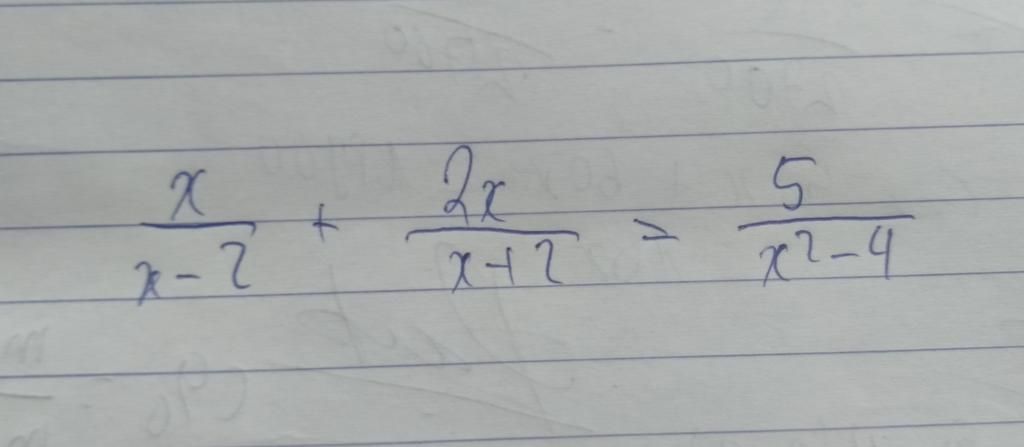 x/(x-2) + 2x/(x+2) = 5/(x²-4)